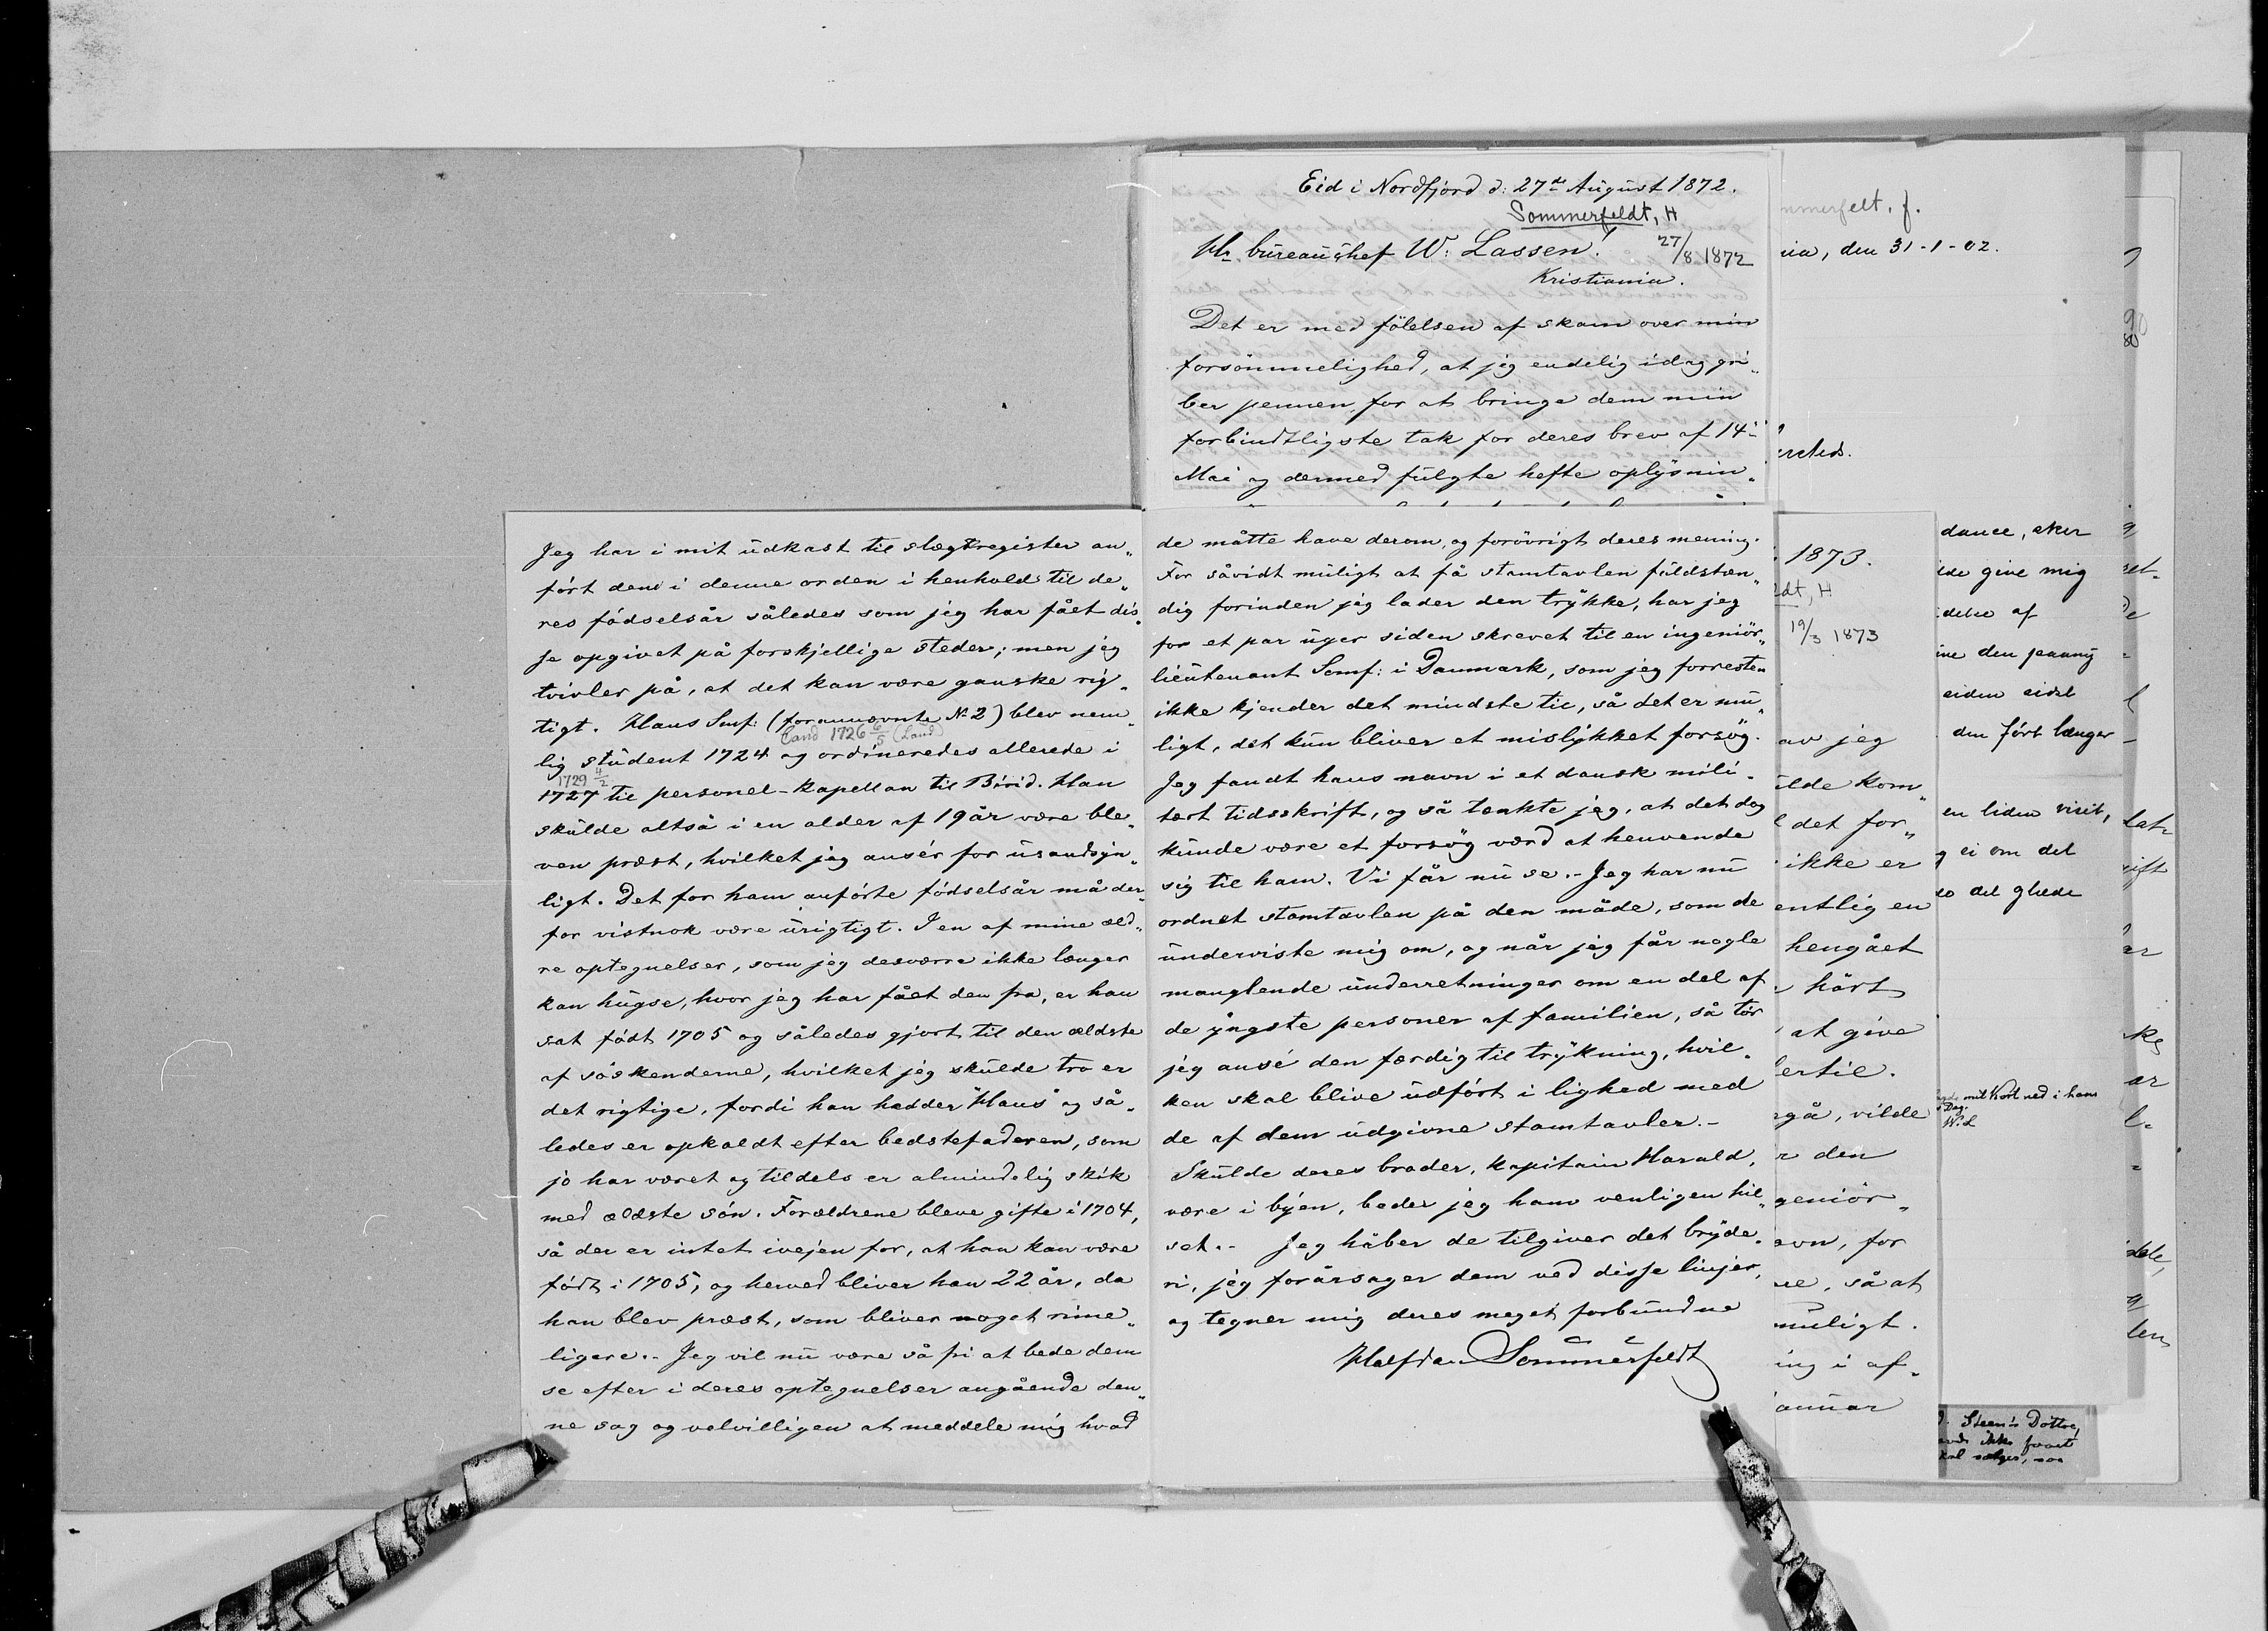 Eid i Nordfjord d: 27de August 1872.
Sommerfeldt, H
27/8 1872
Hr. bureauchef W: Lassen!
Kristiania.
Det er med følelsen af skam over min
forsömmelighed, at jeg endelig idag gri„
ber pennen for at bringe dem min
forbindtligste tak for deres brev af 14de
Mai og dermed fulgte hefte oplysnin„
Jeg har i mit udkast til slægtregister an„
ført dem i denne orden i henhold til de„
res fødselsår således som jeg har fået dis„
se opgivet på forskjellige steder; men jeg
tvivler på, at det kan være ganske rig„
tigt. Hans Smf: (forannævnte No 2) blev nem„
Cand 1726 6/5 (Laud)
lig student 1724 og ordineredes allerede i
1729 4/2
1727 til personel-kapellan til Birid. Han
skulde altså i en alder af 19 år være ble„
ven præst, hvilket jeg ansér for usandsyn„
ligt. Det for ham anførte fødselsår må der„
for vistnok være urigtigt. I en af mine æld„
re optegnelser, som jeg desværre ikke længer
kan hugse, hvor jeg har fået den fra, er han
sat født 1705 og således gjort til den ældste
af søskenderne, hvilket jeg skulde tro er
det rigtige, fordi han hedder "Hans" og så„
ledes er opkaldt efter bedstefaderen, som
jo har været og tildels er almindelig skik
med ældste søn. Forældrene bleve gifte i 1704,
så der er intet ivejen for, at han kan være
født i 1705, og herved bliver han 22 år, da
han blev præst, som bliver noget rime„
ligere.- Jeg vil nu være så fri at bede dem
se efter i deres optegnelser angående den„
ne sag og velvilligen at meddele mig hvad
de måtte have derom, og forövrigt deres mening.
For såvidt muligt at få stamtavlen fuldstæn„
dig forinden jeg lader den trykke, har jeg
for et par uger siden skrevet til en ingeniör„
lieutenant Somf: i Danmark, som jeg forresten
ikke kjender det mindste til, så det er mu„
ligt, det kun bliver et mislykket forsög.
Jeg fandt hans navn i et dansk mili„
tært tidsskrift, og så tænkte jeg, at det dog
kunde være et forsög værd at henvende
sig til ham. Vi får nu se.- Jeg har nu
ordnet stamtavlen på den måde, som de
underviste mig om, og når jeg får nogle
manglende underretninger om en del af
de yngste personer af familien, så tör
jeg ansé den færdig til trykning, hvil„
ken skal blive udfört i lighed med
de af dem udgivne stamtavler.-
Skulde deres broder, kapitain Harald,
være i byen, beder jeg ham venligen hil„
set.- Jeg håber de tilgiver det bryde„
ri, jeg forårsager dem ved disse linjer,
og tegner mig deres meget forbundne
Halfdan Sommerfeldt
mmerfelt, f.
nia, den 31-1-02.
1873.
ldt, H
19/3 1873
av jeg
ulde kom„
det for„
ikke er
entlig en
hengået
hört
at give
ertil.
rgå, vilde
r den
geniör„
avn, for
re, så at
muligt.
ing i af„
anuar
give mig
af
den
den fört længer
en liden visit,
ei om det
det glæde
mit Kort ned i hans
Dag.
W.L
Steen's Dotter,
ikke
sælges,